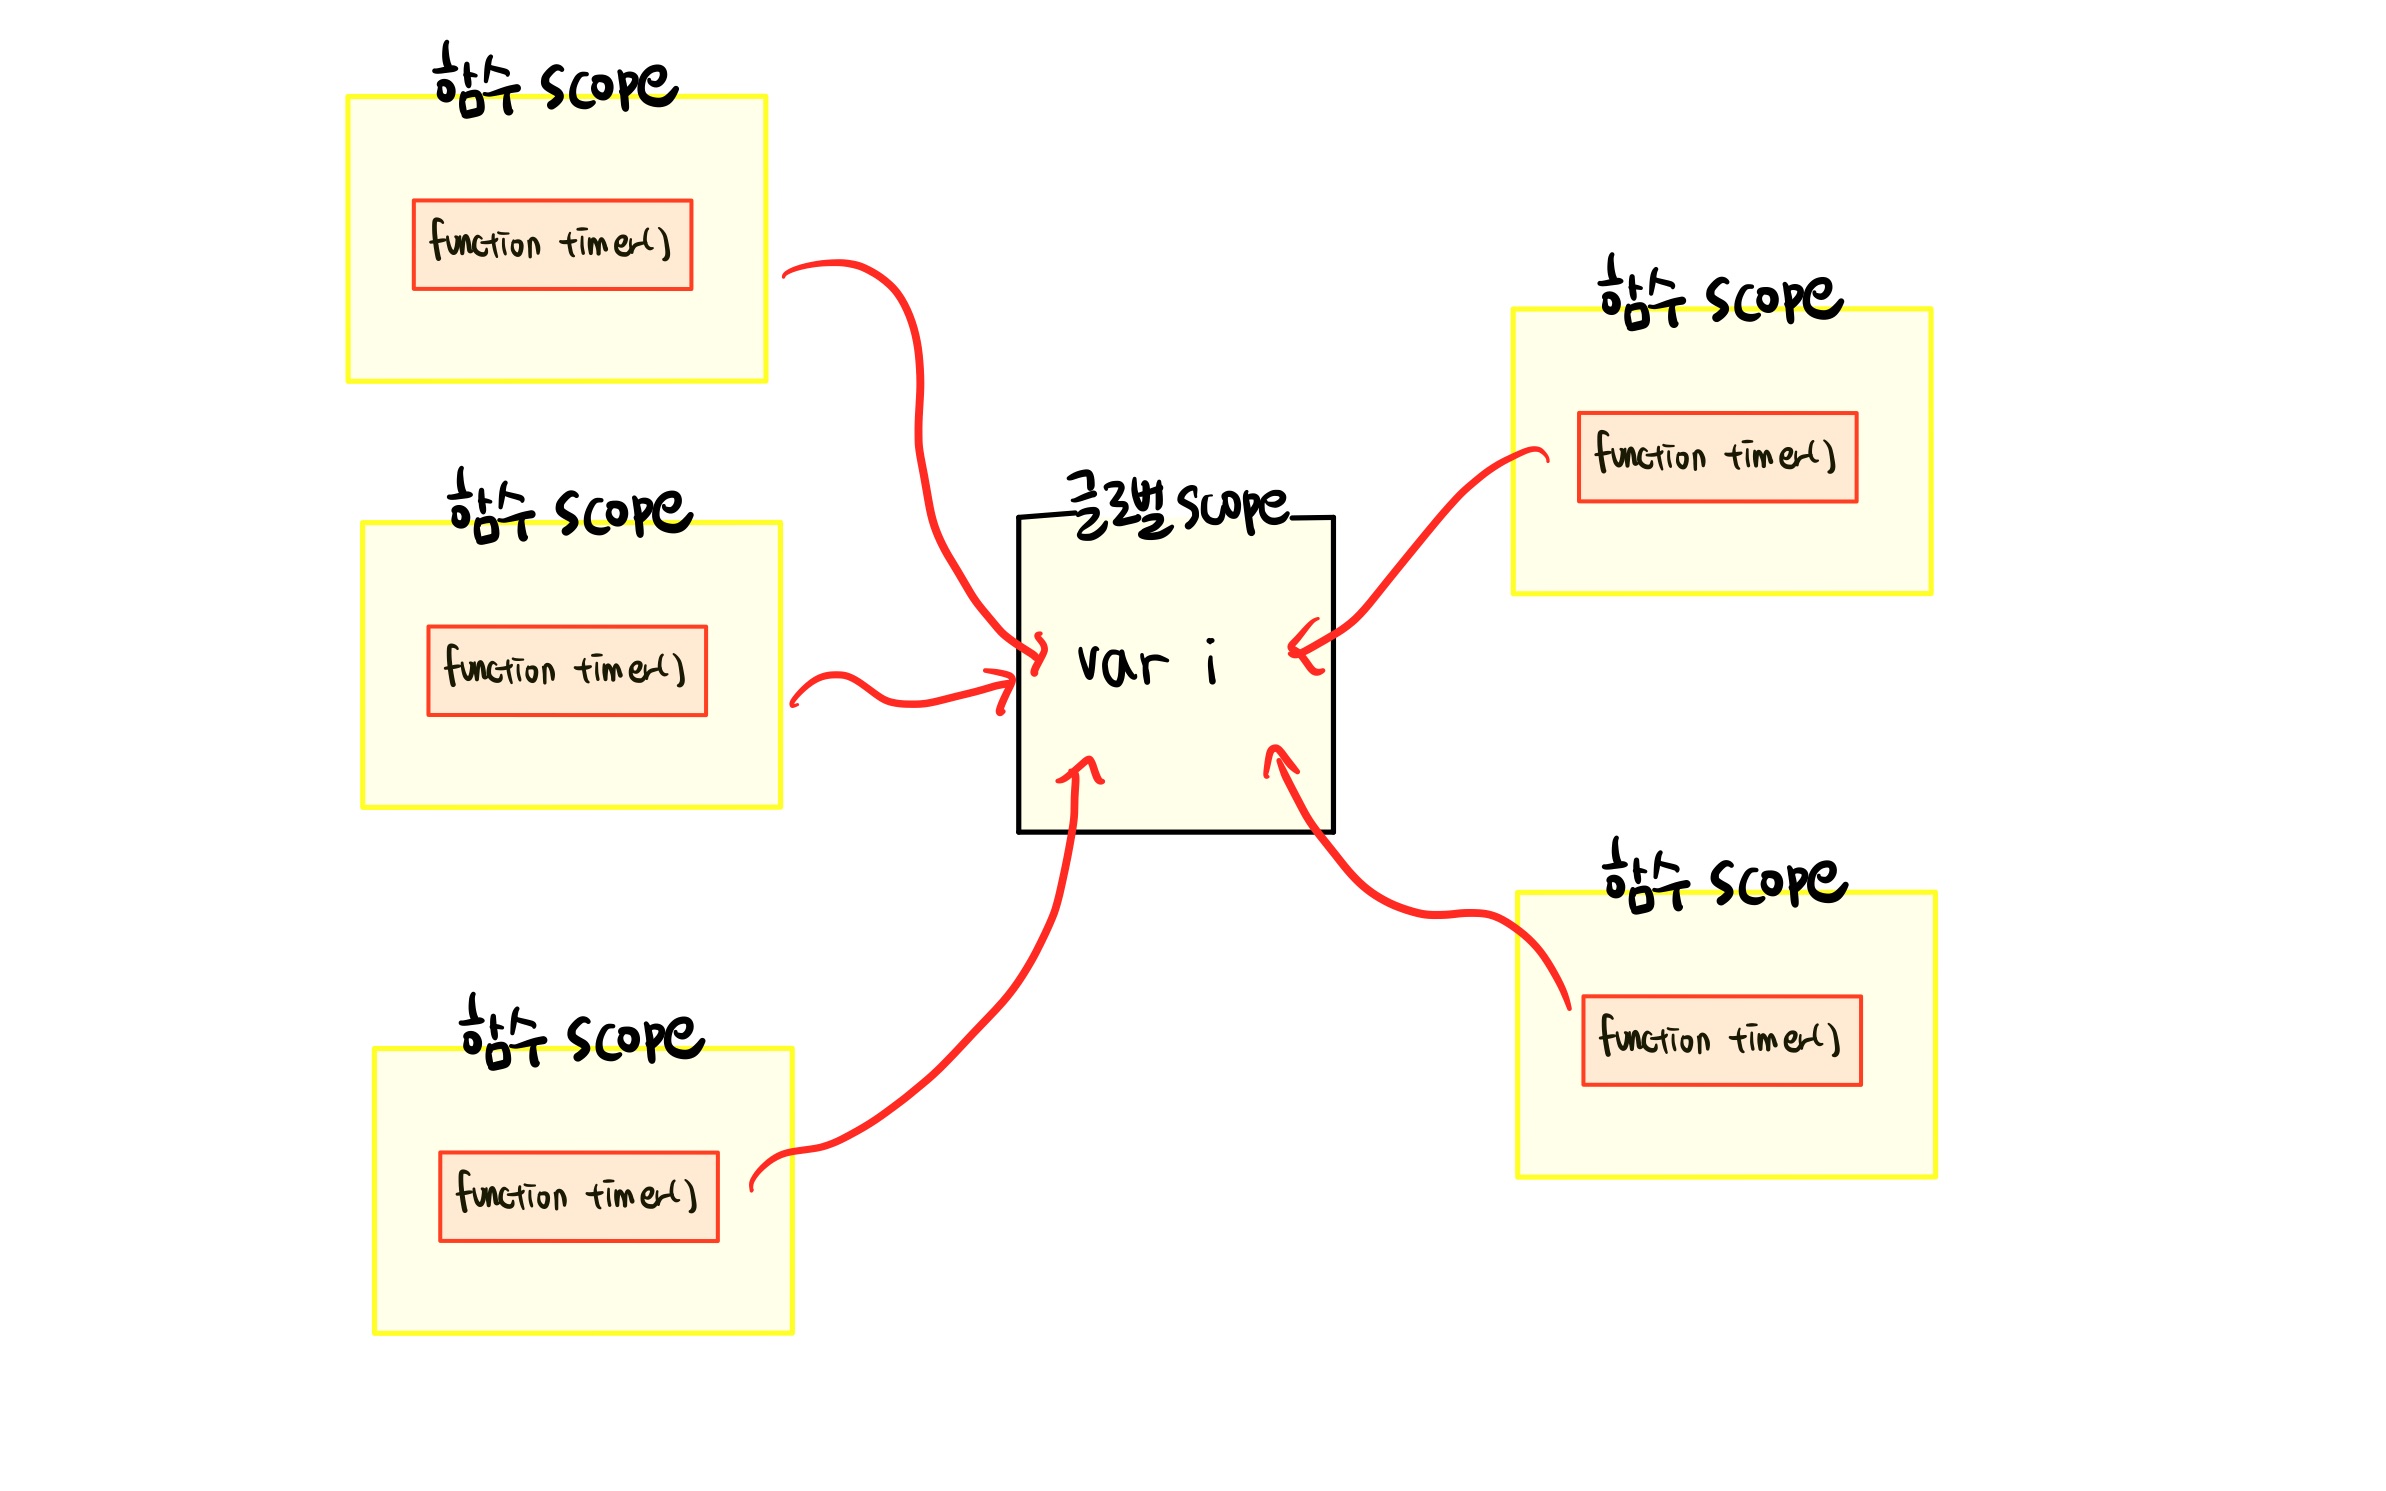 함수 scope
function timer()
함수 scope
function timer()
함수 scope
function timer()
글로벌 scope
var i
함수 scope
function timer()
함수 scope
function timer()